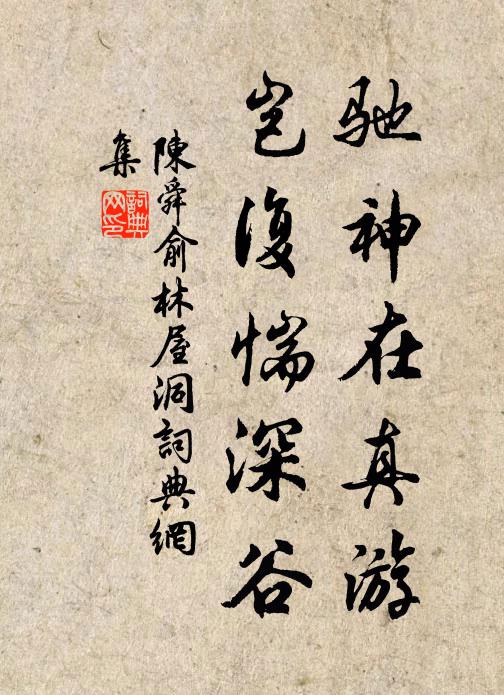 馳神在真游
岂復惴深谷
陳舜俞林屋洞詞典網
集
詞典
网印